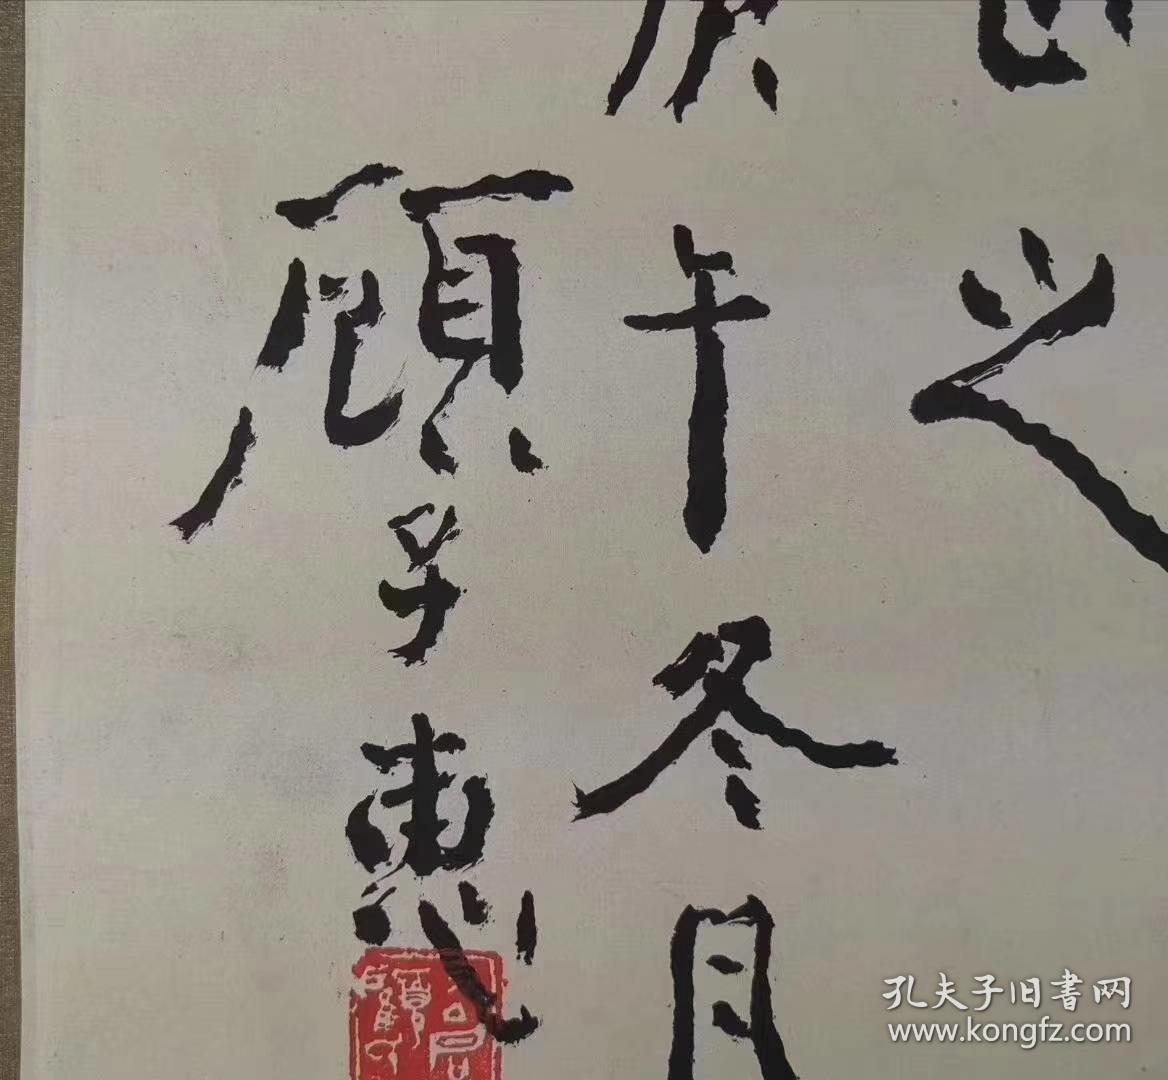 之
庚午冬月
顧子惠
孔夫子旧書网
www.kongfz.com